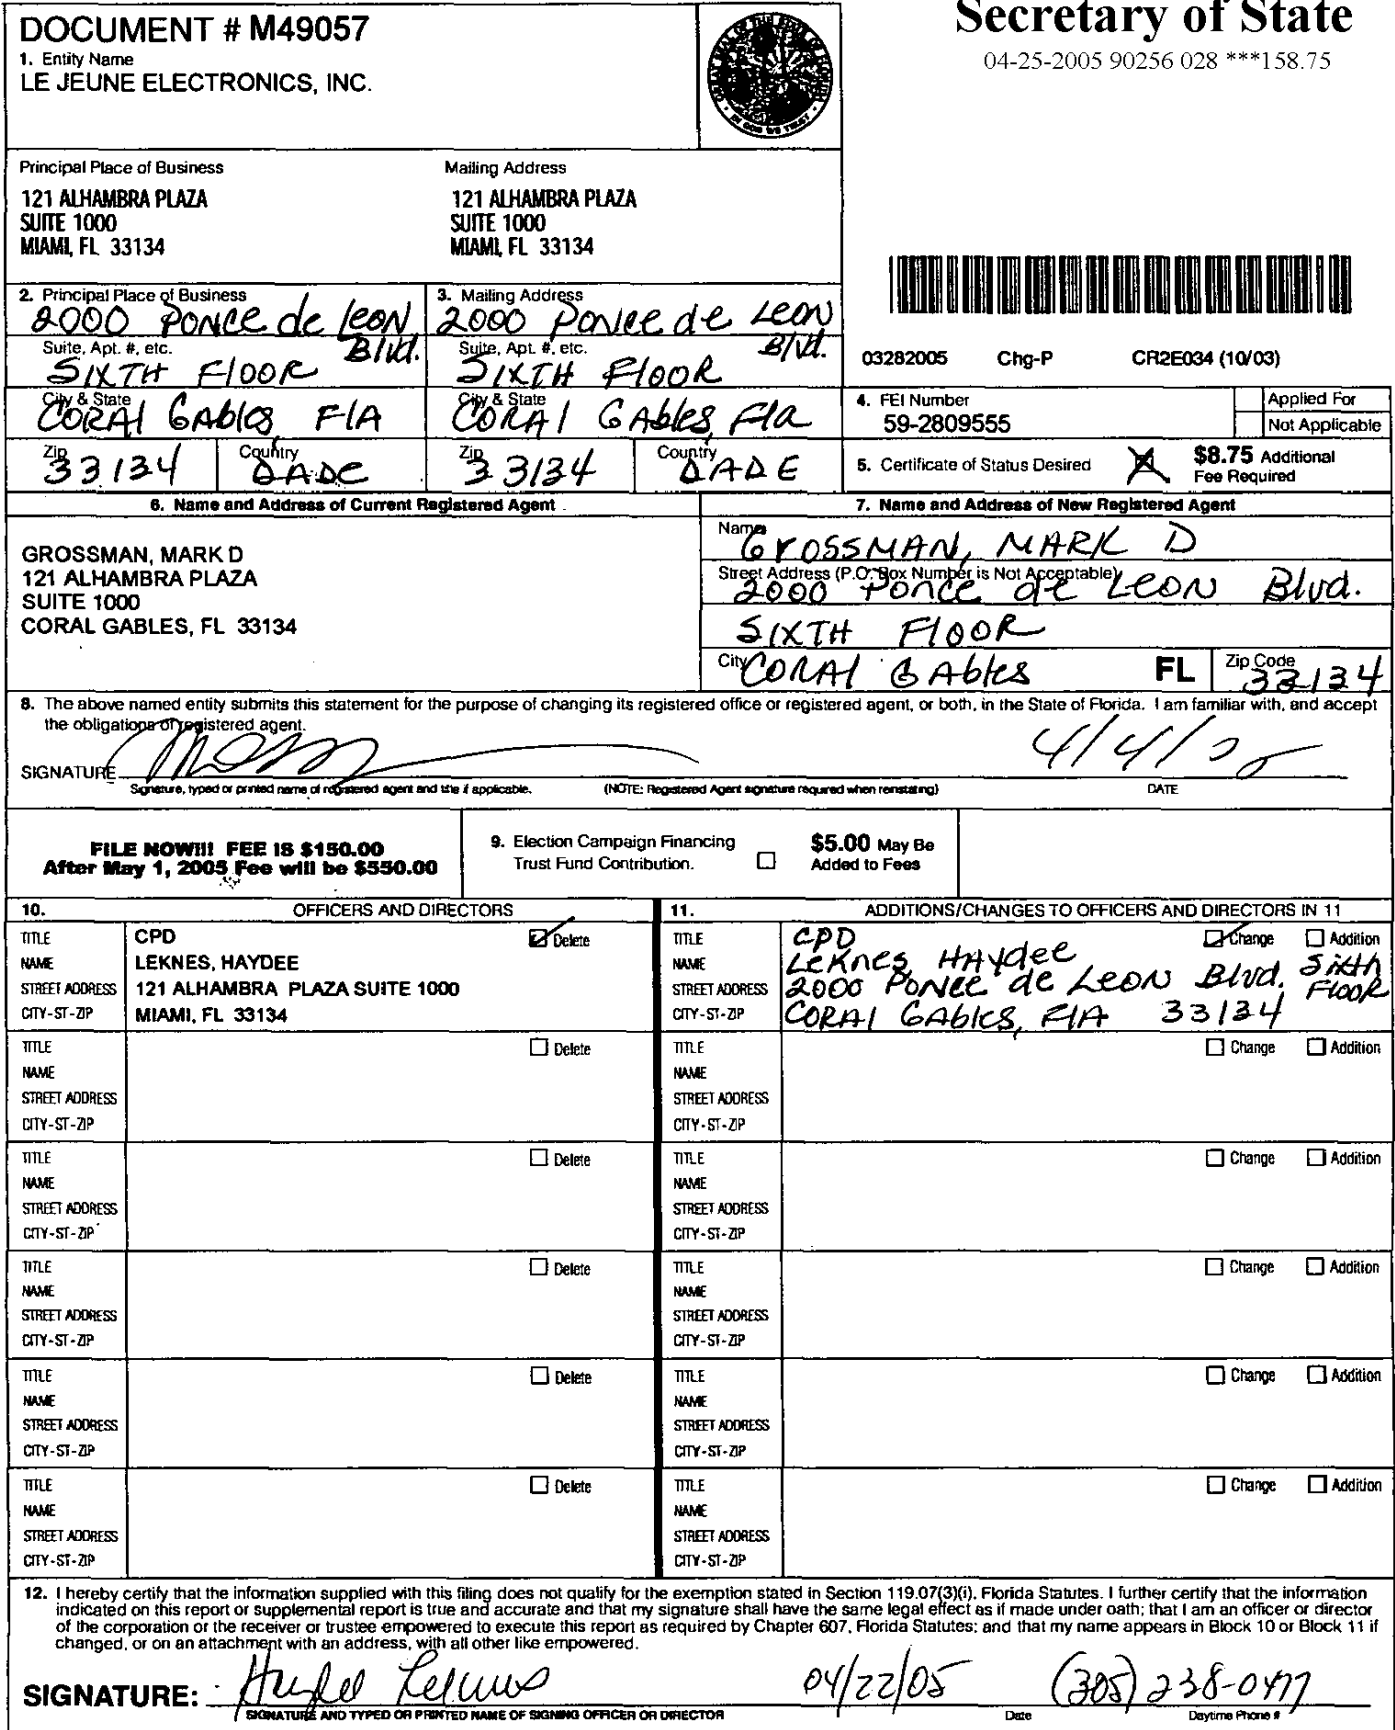 Secretary of State
04-25-2005 90256 028 ***158.75
DOCUMENT # M49057
1. Entity Name
LE JEUNE ELECTRONICS, INC.
Principal Place of Business
121 ALHAMBRA PLAZA
SUITE 1000
MIAMI, FL 33134
Mailing Address
121 ALHAMBRA PLAZA
SUITE 1000
MIAMI, FL 33134
2. Principal Place of Business
2000 Ponce de Leon Blvd.
Suite, Apt. #, etc.
SIXTH FLOOR
City & State
CORAl GAbles, FlA
Zip
33134
Country
DADE
3. Mailing Address
2000 Ponce de Leon Blvd.
Suite, Apt. #, etc.
SIXTH FLOOR
City & State
CORAl GAbles, Fla
Zip
33134
Country
DADE
03282005 Chg-P CR2E034 (10/03)
4. FEI Number
59-2809555
Applied For
Not Applicable
5. Certificate of Status Desired
$8.75 Additional
Fee Required
6. Name and Address of Current Registered Agent
GROSSMAN, MARK D
121 ALHAMBRA PLAZA
SUITE 1000
CORAL GABLES, FL 33134
7. Name and Address of New Registered Agent
Name
GrOSSMAN, MARK D
Street Address (P.O. Box Number is Not Acceptable)
2000 Ponce de LeoN Blvd.
SIXTH FLOOR
City
CORAl GAbles
FL
Zip Code
33134
8. The above named entity submits this statement for the purpose of changing its registered office or registered agent, or both, in the State of Florida. I am familiar with, and accept
the obligations of registered agent.
SIGNATURE
4/4/05
Signature, typed or printed name of registered agent and title if applicable. (NOTE: Registered Agent signature required when reinstating) DATE
FILE NOW!!! FEE IS $150.00
After May 1, 2005 Fee will be $550.00
9. Election Campaign Financing
Trust Fund Contribution.
$5.00 May Be
Added to Fees
10. OFFICERS AND DIRECTORS
TITLE CPD Delete
NAME LEKNES, HAYDEE
STREET ADDRESS 121 ALHAMBRA PLAZA SUITE 1000
CITY-ST-ZIP MIAMI, FL 33134
TITLE Delete
NAME
STREET ADDRESS
CITY-ST-ZIP
TITLE Delete
NAME
STREET ADDRESS
CITY-ST-ZIP
TITLE Delete
NAME
STREET ADDRESS
CITY-ST-ZIP
TITLE Delete
NAME
STREET ADDRESS
CITY-ST-ZIP
TITLE Delete
NAME
STREET ADDRESS
CITY-ST-ZIP
11. ADDITIONS/CHANGES TO OFFICERS AND DIRECTORS IN 11
TITLE CPD Change Addition
NAME LeKnes, HAydee
STREET ADDRESS 2000 Ponce de LeoN Blvd. Sixth FlooR
CITY-ST-ZIP CORAl GAbles, FlA 33134
TITLE Change Addition
NAME
STREET ADDRESS
CITY-ST-ZIP
TITLE Change Addition
NAME
STREET ADDRESS
CITY-ST-ZIP
TITLE Change Addition
NAME
STREET ADDRESS
CITY-ST-ZIP
TITLE Change Addition
NAME
STREET ADDRESS
CITY-ST-ZIP
TITLE Change Addition
NAME
STREET ADDRESS
CITY-ST-ZIP
12. I hereby certify that the information supplied with this filing does not qualify for the exemption stated in Section 119.07(3)(i), Florida Statutes. I further certify that the information
indicated on this report or supplemental report is true and accurate and that my signature shall have the same legal effect as if made under oath; that I am an officer or director
of the corporation or the receiver or trustee empowered to execute this report as required by Chapter 607, Florida Statutes; and that my name appears in Block 10 or Block 11 if
changed, or on an attachment with an address, with all other like empowered.
SIGNATURE: Haydee Leknes 04/22/05 (305) 238-0477
SIGNATURE AND TYPED OR PRINTED NAME OF SIGNING OFFICER OR DIRECTOR Date Daytime Phone #